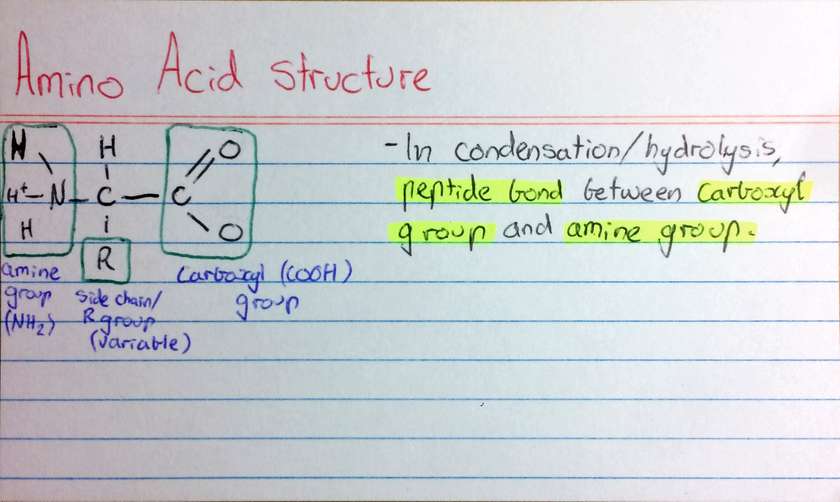 Amino Acid structure
H H O
H+ N C C
H O
R
amine
group
(NH2)
side chain/
R group
(variable)
Carboxyl (COOH)
group
-In condensation/hydrolysis,
peptide bond between carboxyl
group and amine group.